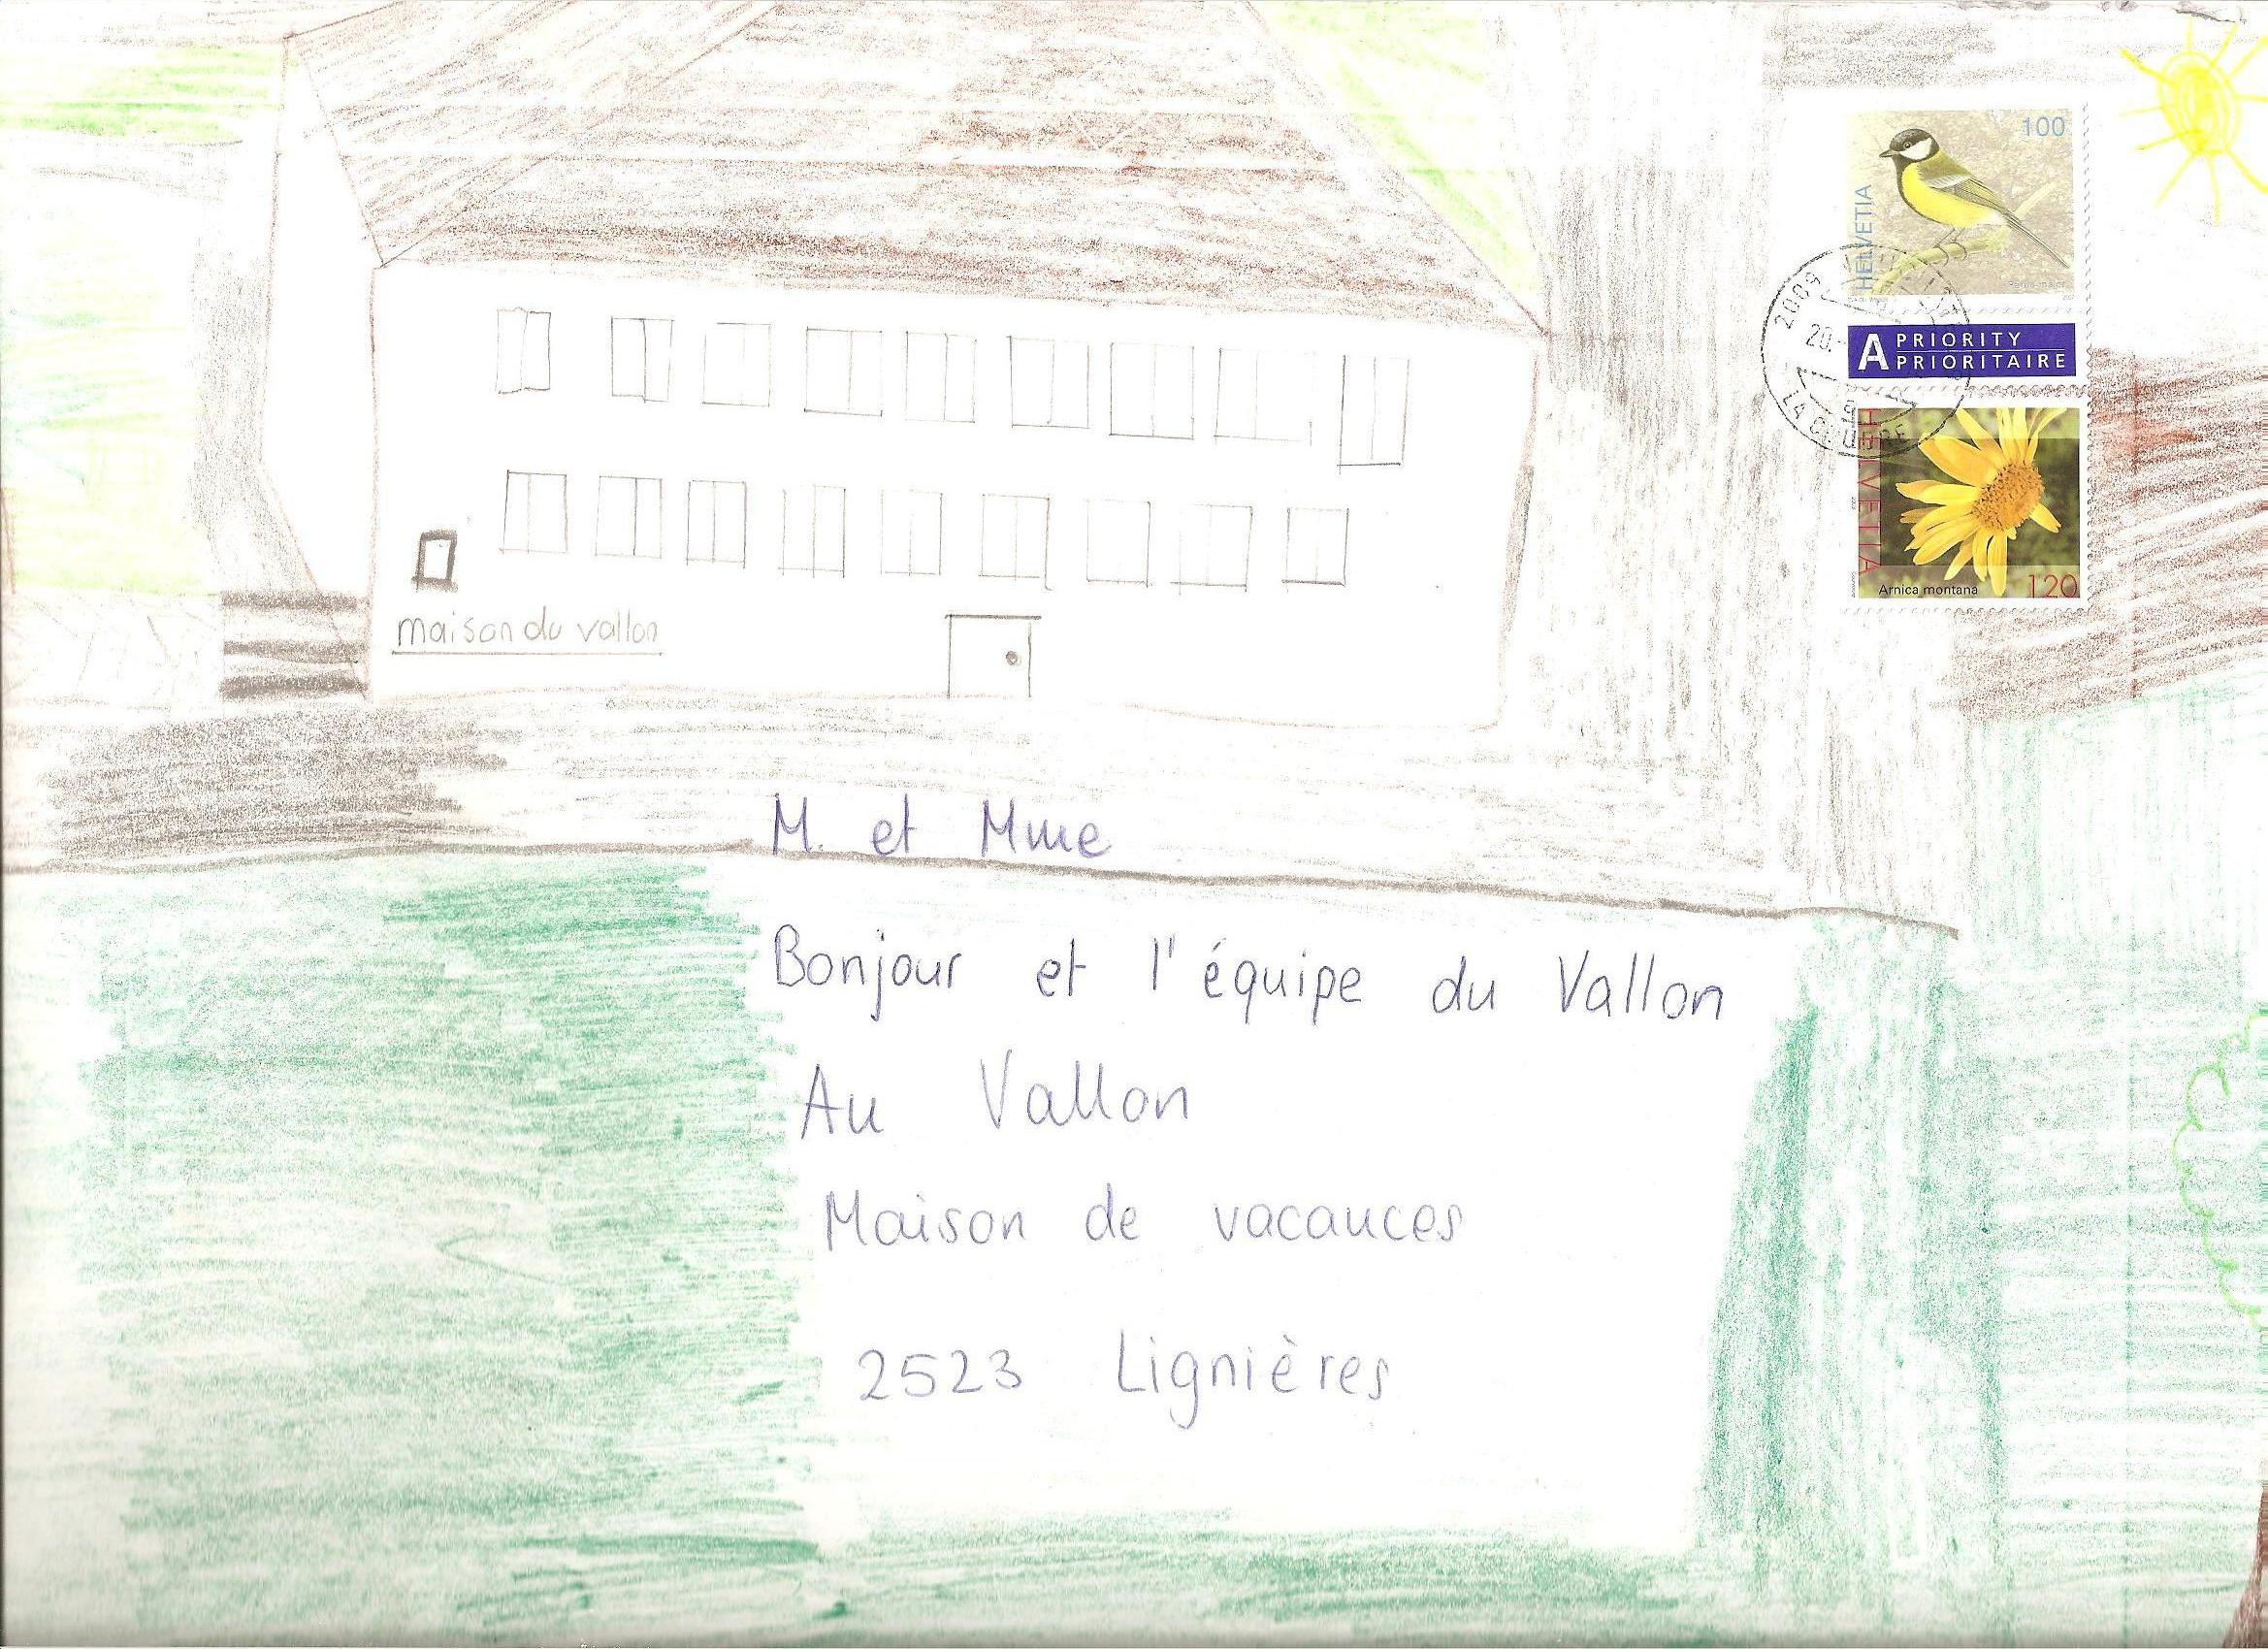 100
HELVETIA
A PRIORITY
PRIORITAIRE
HELVETIA
Arnica montana
120
2009
20.
maison du vallon
M. et Mme
Bonjour et l'équipe du Vallon
Au Vallon
Maison de vacances
2523 Lignières